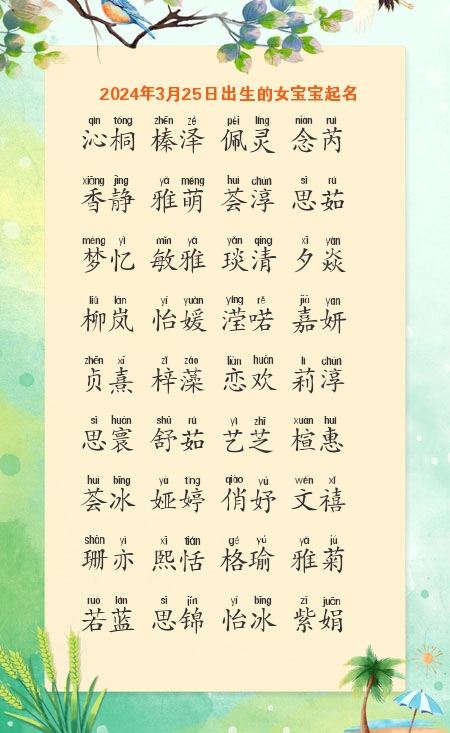 2024年3月25日出生的女宝宝起名
qìn tóng zhēn zé pèi líng niàn ruì
沁桐 榛泽 佩灵 念芮
xiāng jìng yǎ méng huì chún sī rú
香静 雅萌 荟淳 思茹
mèng yì mǐn yǎ yǎn qīng xī yàn
梦忆 敏雅 琰清 夕焱
liǔ lán yí yuàn yíng rě jiā yán
柳岚 怡媛 滢喏 嘉妍
zhēn xī zǐ zǎo liàn huān lì chún
贞熹 梓藻 恋欢 莉淳
sī huán shū rú yì zhī xuān huì
思寰 舒茹 艺芝 楦惠
huì bīng yà tíng qiào yú wén xǐ
荟冰 娅婷 俏妤 文禧
shān yì xī tián gé yú yǎ jú
珊亦 熙恬 格瑜 雅菊
ruò lán sī jǐn yí bīng zǐ juān
若蓝 思锦 怡冰 紫娟